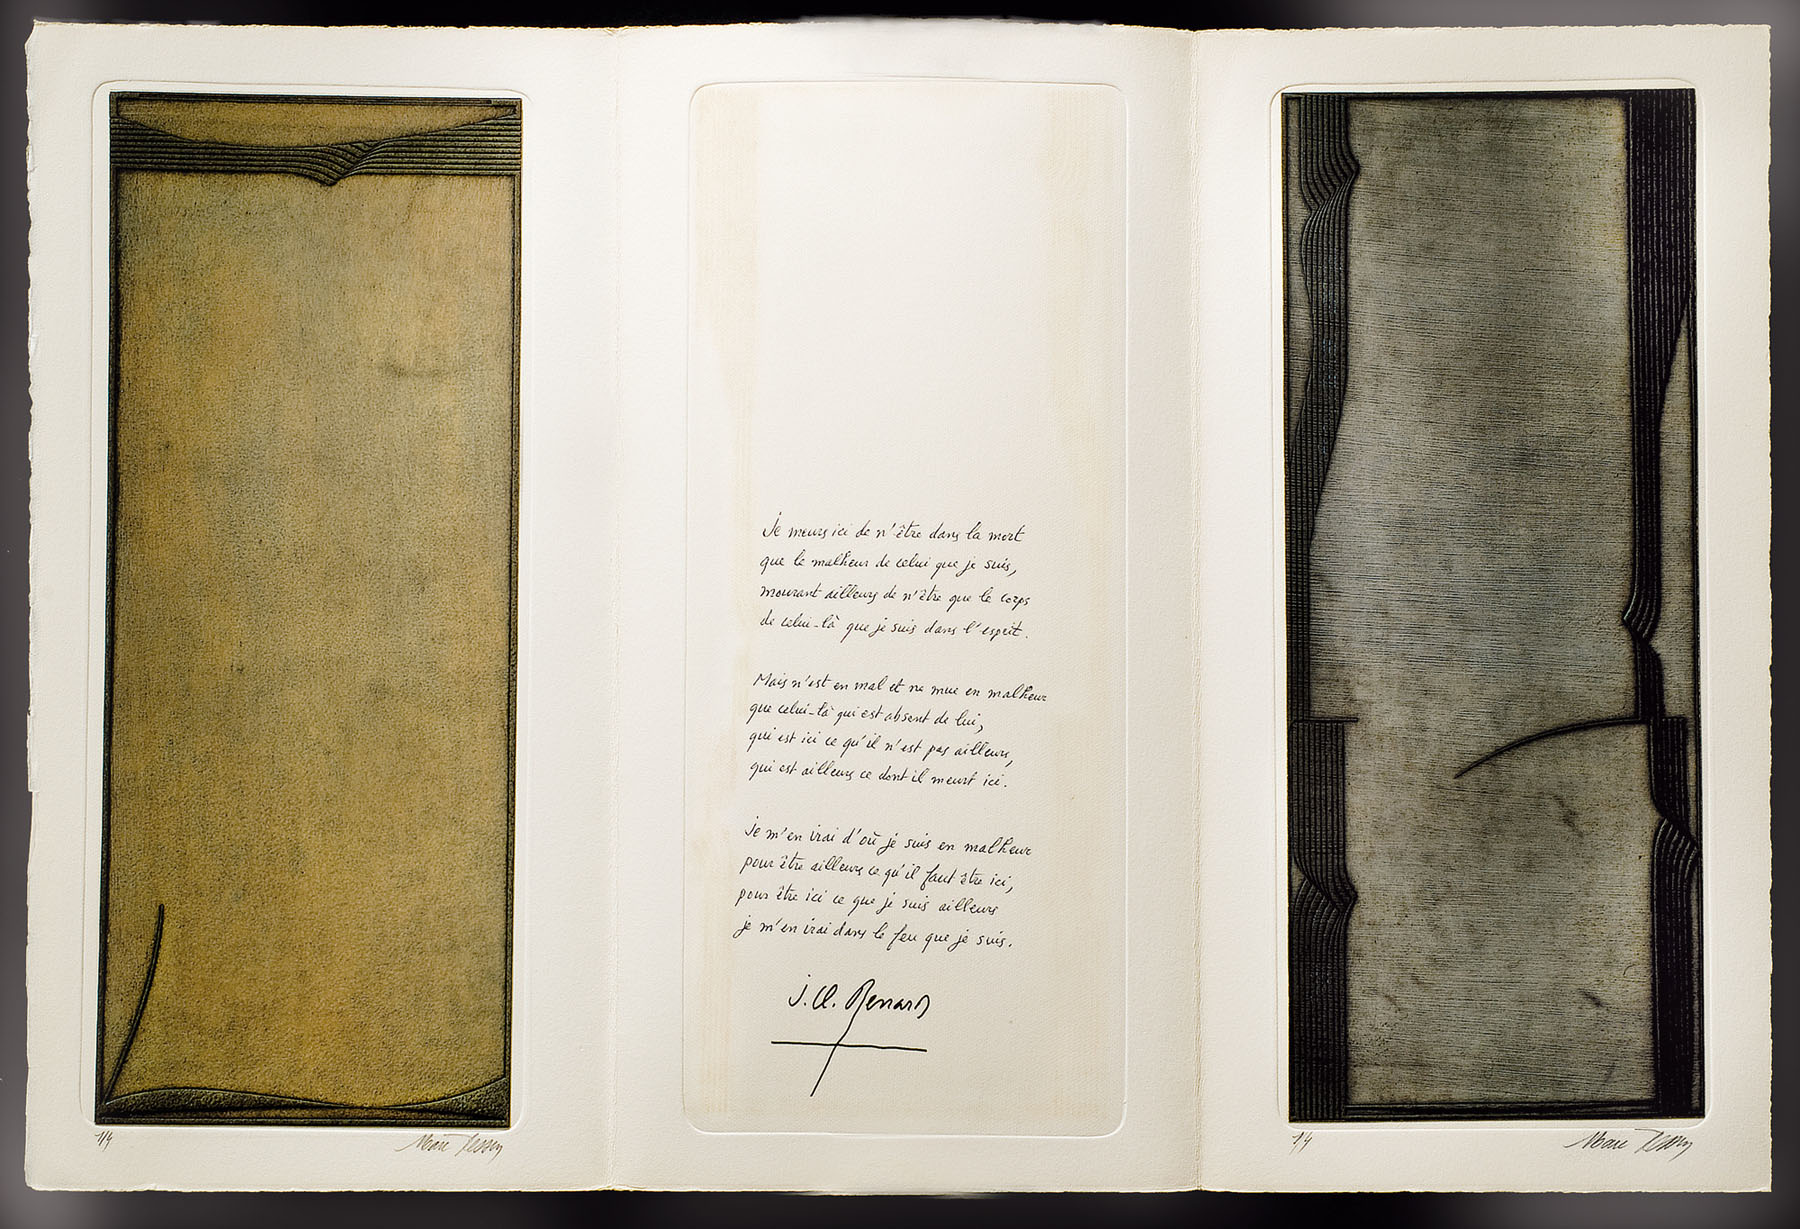 Je meurs ici de n'être dans la mort
que le malheur de celui que je suis,
mourant ailleurs de n'être que le corps
de celui-là que je suis dans l'esprit.
Mais n'est en mal et ne mue en malheur
que celui-là qui est absent de lui,
qui est ici ce qu'il n'est pas ailleurs,
qui est ailleurs ce dont il meurt ici.
Je m'en irai d'où je suis en malheur
pour être ailleurs ce qu'il faut être ici,
pour être ici ce que je suis ailleurs
je m'en irai dans le feu que je suis.
J. Cl. Renard
1/4
Marc Pessin
1/4
Marc Pessin